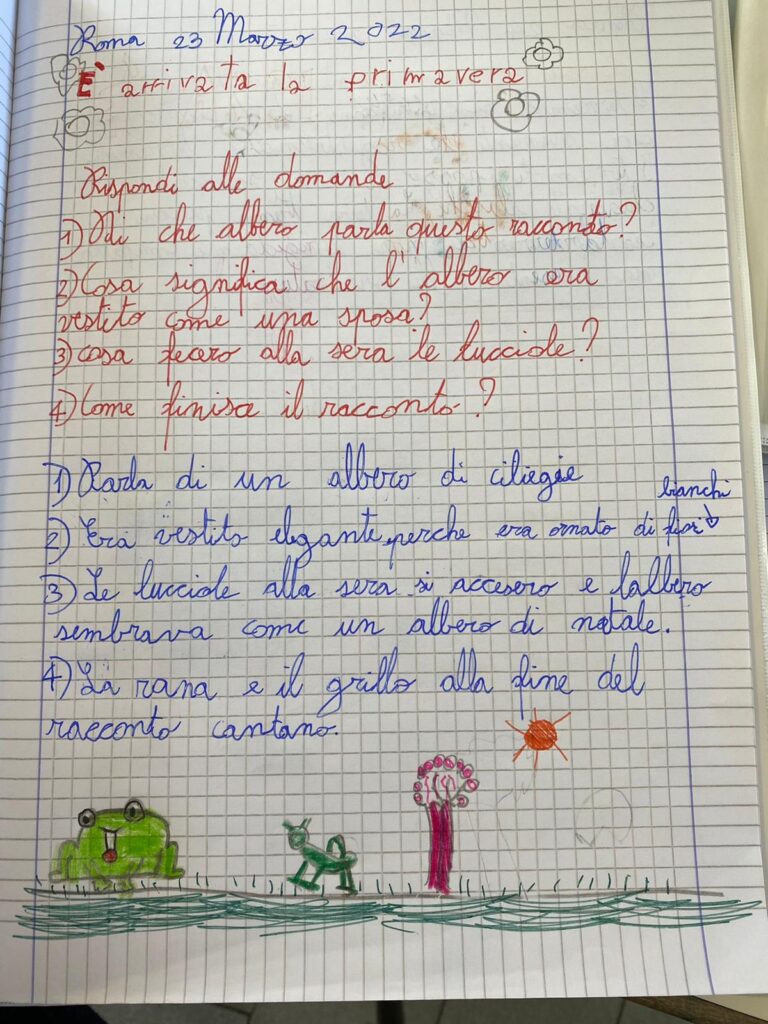 Roma 23 Marzo 2022
È arrivata la primavera
Rispondi alle domande
1) Di che albero parla questo racconto?
2) Cosa significa che l'albero era
vestito come una sposa?
3) cosa fecero alla sera le lucciole?
4) Come finisce il racconto?
1) Parla di un albero di ciliegie
bianchi
2) Era vestito elegante, perche era ornato di fiori
3) Le lucciole alla sera si accesero e lalbero
sembrava come un albero di natale.
4) La rana e il grillo alla fine del
racconto cantano.